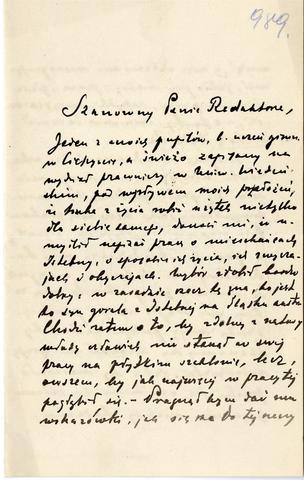 989.
Szanowny Panie Redaktorze,
Jeden z moich pupilów, b. uczeń gimn.
w Cieszynie, a świeżo zapisany na
wydział prawniczy w Uniw. wiedeń-
skim, pod wpływem moich
z życia robić użytek nietylko
dla siebie samego, donosi mi, iż u-
myślił napisać pracę o mieszkańcach
Istebny, o sposobie ich życia, ich zwycza-
jach i obyczajach. Wybór zrobił bardzo
dobry; w zasadzie rzecz tę zna, bo jest
synem z Istebnej na Śląsku austr.
Chodzi zatem o to, by zdolny z natury
młody człowiek nie stanął w swej
pracy na płytkim szablonie, lecz,
owszem, by jak najwięcej w pracy tej
pogłębił się. – Pragnąłbym dać mu
wskazówki, jak się ma do tej rzeczy